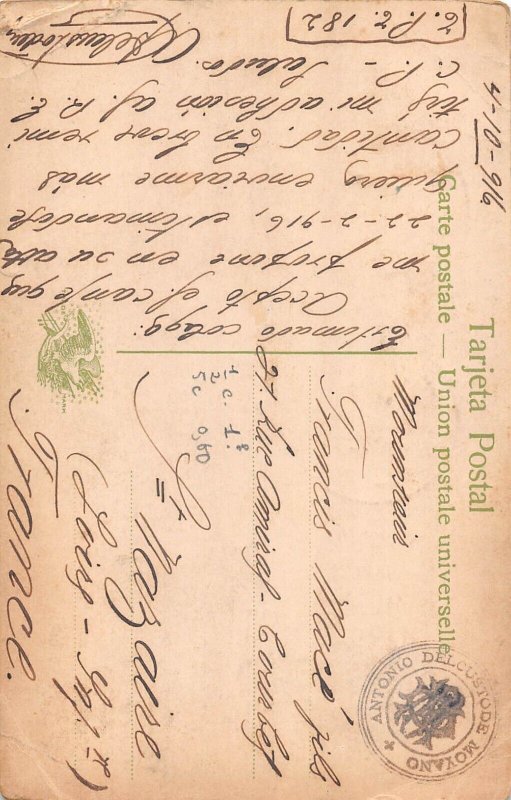 Tarjeta Postal
Carte postale — Union postale universelle
4-10-916
Estimado colega:
Acepto el canje que
me propone en su atta
22-2-916, estimandole
quiera enviarme más
cantidad. En breve remi
tiré mi adhesión al R. E.
C. P. - Saludos.
A Delcustode
E. P. E. 182
Monsieur
Francis Macé fils
27 Rue Amiral-Courbet
St Nazaire
(Loire-Infre)
France.
1 c. 1.
2
5 c 0,60
ANTONIO DELCUSTODE MOYANO